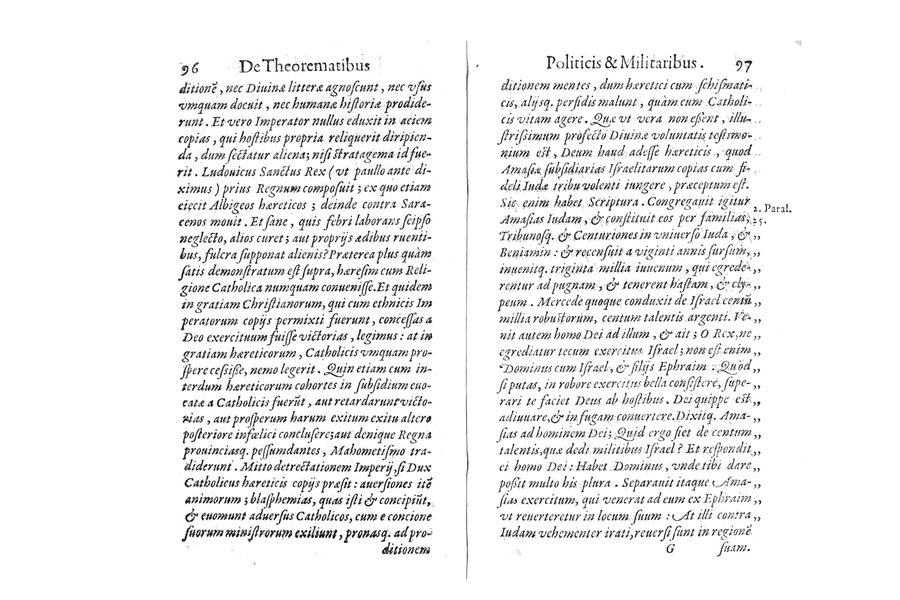 96 De Theorematibus
ditionē, nec Diuinæ litteræ agnoscunt, nec vsus
vmquam docuit, nec humanæ historiæ prodide-
runt. Et vero Imperator nullus eduxit in aciem
copias, qui hostibus propria reliquerit diripien-
da, dum sectatur aliena; nisi stratagema id fue-
rit. Ludouicus Sanctus Rex (vt paullo ante di-
ximus) prius Regnum composuit; ex quo etiam
eiecit Albigeos hæreticos; deinde contra Sara-
cenos mouit. Et sane, quis febri laborans seipso
neglecto, alios curet; aut proprijs ædibus ruenti-
bus, fulcra supponat alienis? Præterea plus quàm
satis demonstratum est supra, hæresim cum Reli-
gione Catholica numquam conuenisse. Et quidem
in gratiam Christianorum, qui cum ethnicis Im
peratorum copijs permixti fuerunt, concessas a
Deo exercituum fuisse victorias, legimus: at in
gratiam hæreticorum, Catholicis vmquam pro-
spere cessisse, nemo legerit. Quin etiam cum in-
terdum hæreticorum cohortes in subsidium euo-
catæ a Catholicis fuerūt, aut retardarunt victo-
rias, aut prosperum harum exitum exitu altero
posteriore infælici conclusere; aut denique Regna
prouinciasq. pessumdantes, Mahometismo tra-
diderunt. Mitto detrectationem Imperij, si Dux
Catholicus hæreticis copijs præsit: auersiones itē
animorum; blasphemias, quas isti & concipiūt,
& euomunt aduersus Catholicos, cum e concione
suorum ministrorum exiliunt, pronasq. ad pro-
ditionem
Politicis & Militaribus. 97
ditionem mentes, dum hæretici cum schismati-
cis, alijsq. perfidis malunt, quàm cum Catholi-
cis vitam agere. Quæ vt vera non essent, illu-
strissimum profecto Diuinæ voluntatis testimo-
nium est, Deum haud adesse hæreticis, quod
Amasiæ subsidiarias Israelitarum copias cum fi-
deli Iudæ tribu volenti iungere, præceptum est.
Sic enim habet Scriptura. Congregauit igitur
2. Paral. 25.
Amasias Iudam, & constituit eos per familias,
Tribunosq. & Centuriones in vniuerso Iuda, & „
Beniamin: & recensuit a viginti annis sursum, „
inuenitq. triginta millia iuuenum, qui egrede- „
rentur ad pugnam, & tenerent hastam, & cly- „
peum. Mercede quoque conduxit de Israel centū „
millia robustorum, centum talentis argenti. Ve- „
nit autem homo Dei ad illum, & ait; O Rex, ne „
egrediatur tecum exercitus Israel; non est enim „
Dominus cum Israel, & filijs Ephraim: Quòd „
si putas, in robore exercitus bella consistere, supe- „
rari te faciet Deus ab hostibus. Dei quippe est „
adiuuare, & in fugam conuertere. Dixitq. Ama- „
sias ad hominem Dei; Quid ergo fiet de centum „
talentis, quæ dedi militibus Israel? Et respondit „
ei homo Dei: Habet Dominus, vnde tibi dare „
possit multo his plura. Separauit itaque Ama- „
sias exercitum, qui venerat ad eum ex Ephraim „
vt reuerteretur in locum suum: At illi contra „
Iudam vehementer irati, reuersi sunt in regionē „
G suam.